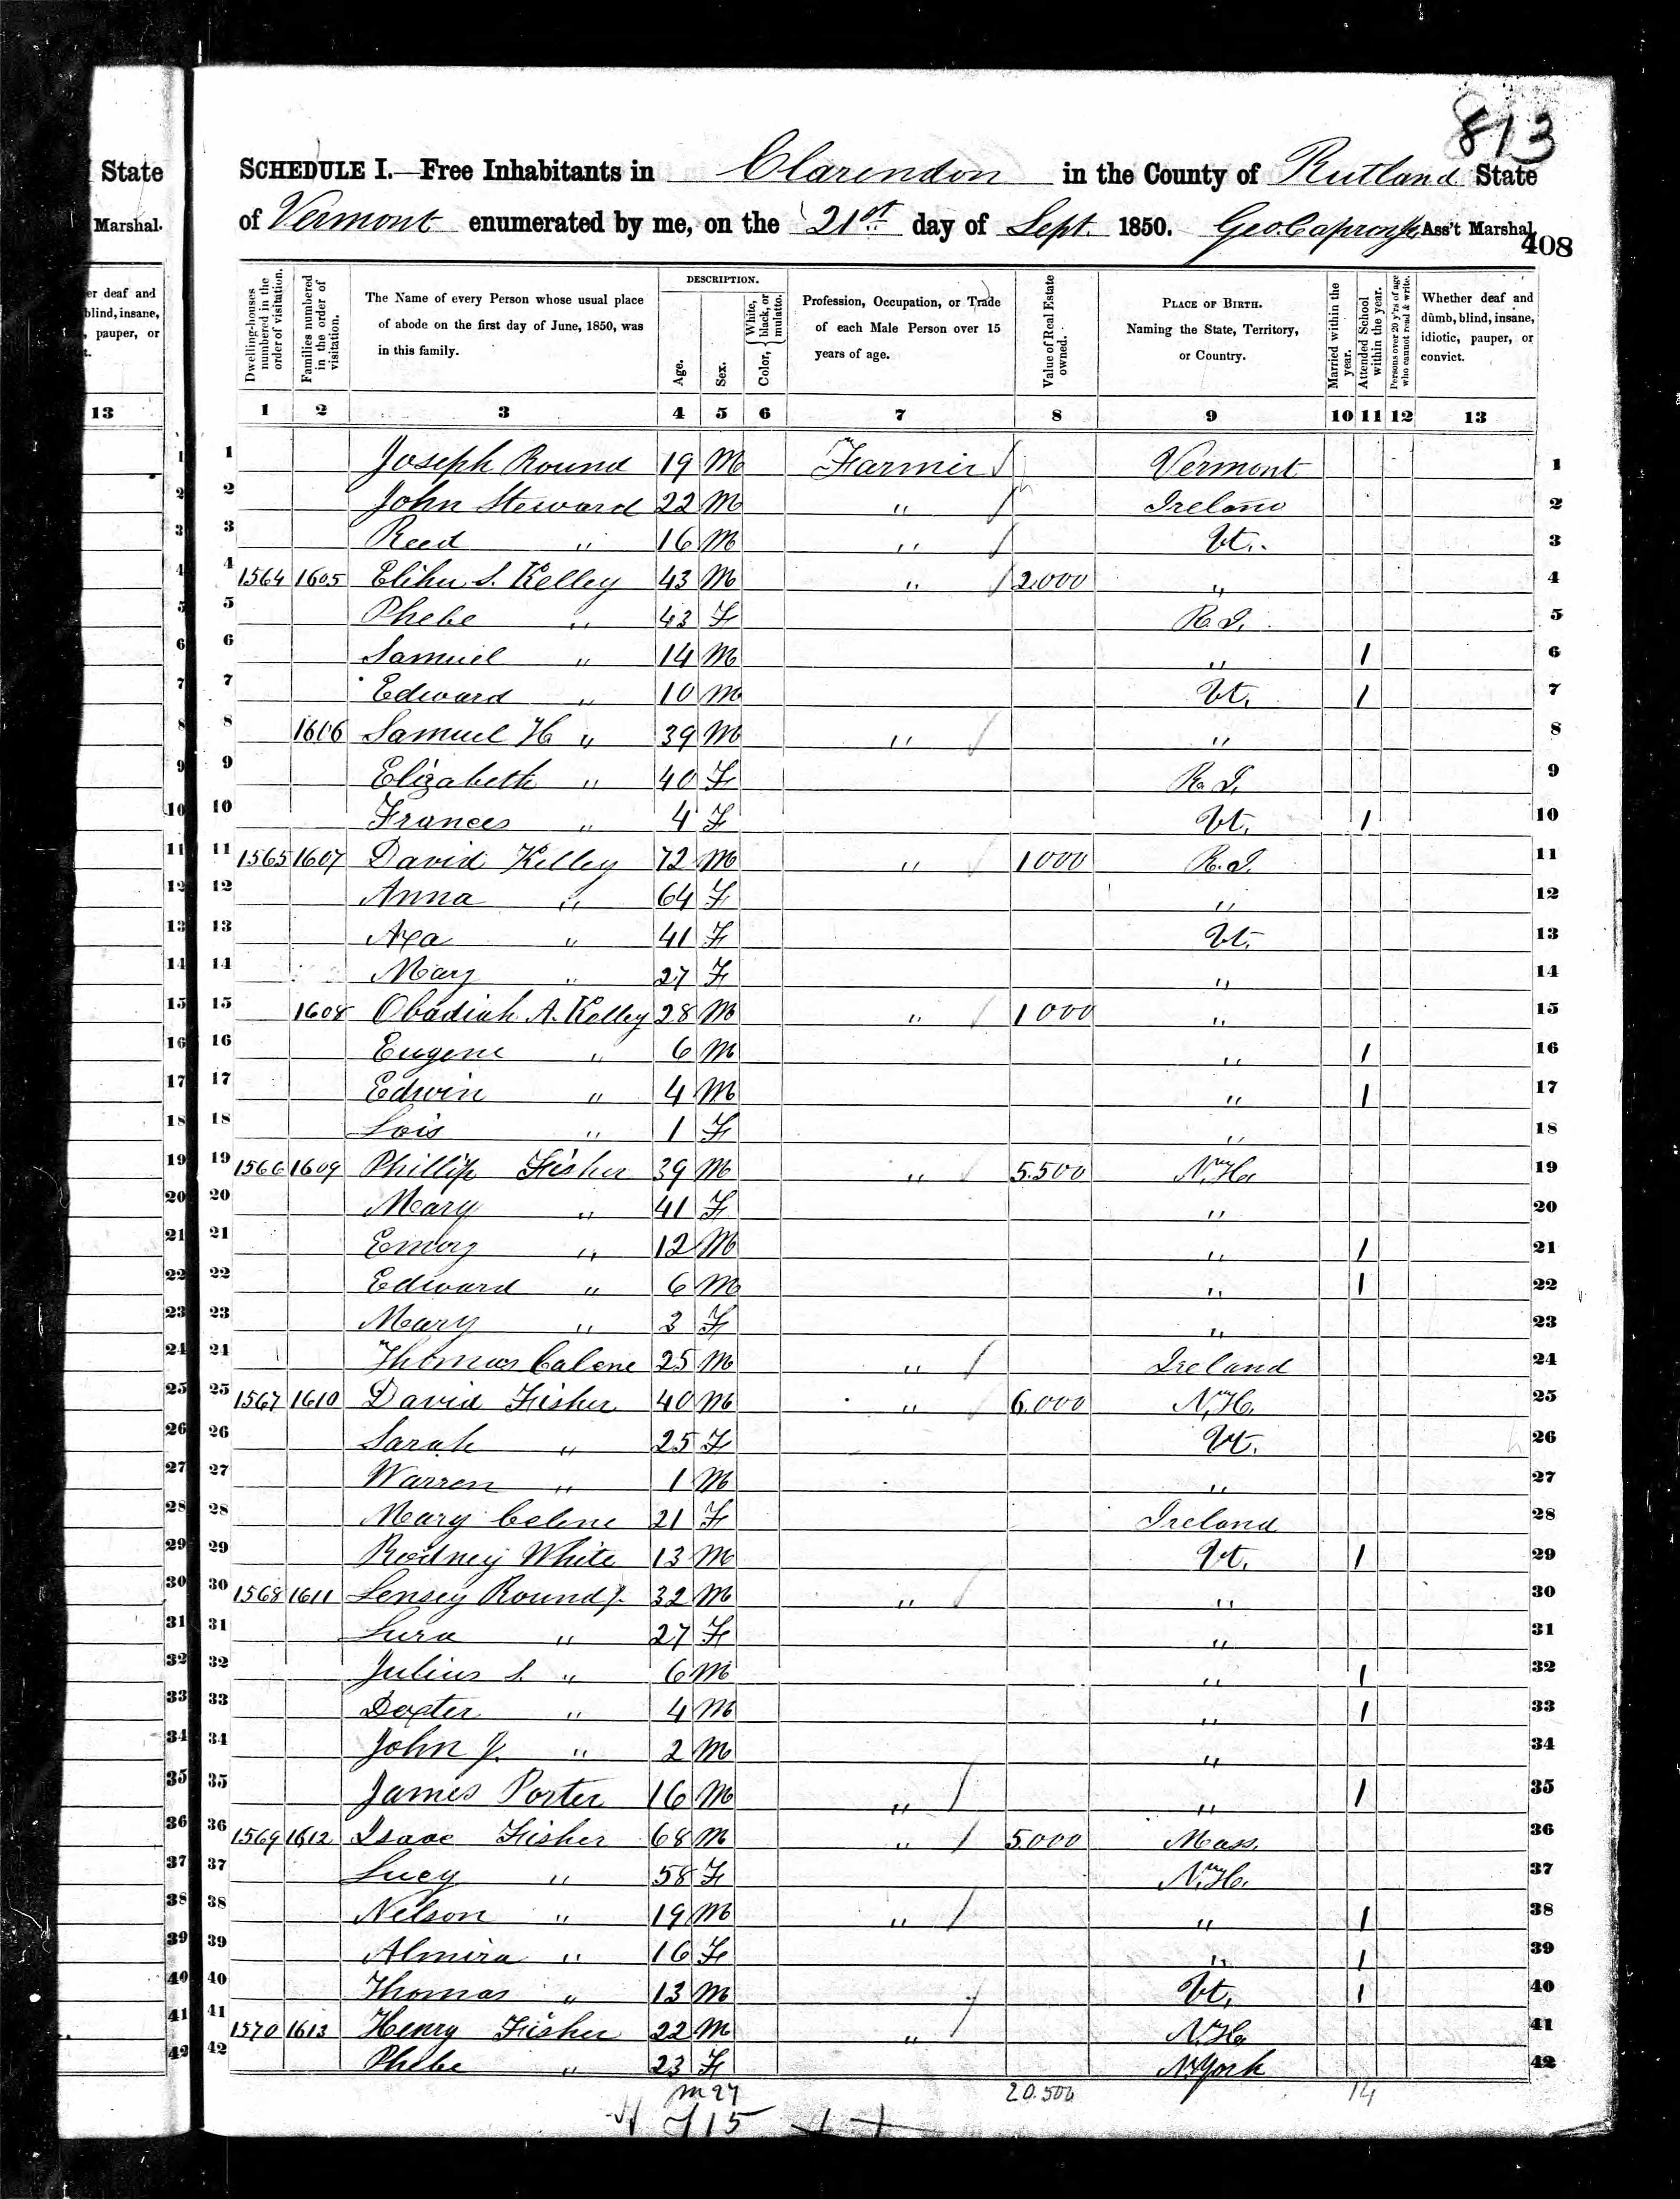 813
State
Marshal.
er deaf and
blind, insane,
, pauper, or
t.
13
SCHEDULE I.—Free Inhabitants in Clarendon in the County of Rutland State
of Vermont enumerated by me, on the 21st day of Sept. 1850. Geo. Capron Ass't Marshal
408
Dwelling-houses numbered in the order of visitation.
Families numbered in the order of visitation.
The Name of every Person whose usual place of abode on the first day of June, 1850, was in this family.
DESCRIPTION.
Age.
Sex.
Color, { White, black, or mulatto.
Profession, Occupation, or Trade of each Male Person over 15 years of age.
Value of Real Estate owned.
PLACE OF BIRTH. Naming the State, Territory, or Country.
Married within the year.
Attended School within the year.
Persons over 20 y'rs of age who cannot read & write.
Whether deaf and dumb, blind, insane, idiotic, pauper, or convict.
1 2 3 4 5 6 7 8 9 10 11 12 13
1 Joseph Round 19 M Farmer Vermont 1
2 John Steward 22 M " Ireland 2
3 Reed " 16 M " Vt. 3
4 1564 1605 Elihu S. Kelley 43 M " 2.000 " 4
5 Phebe " 43 F R.I. 5
6 Samuel " 14 M " 1 6
7 Edward " 10 M Vt. 1 7
8 1606 Samuel H " 39 M " " 8
9 Elizabeth " 40 F R.I. 9
10 Frances " 4 F Vt. 1 10
11 1565 1607 David Kelley 72 M " 1000 R.I. 11
12 Anna " 64 F " 12
13 Axa " 41 F Vt. 13
14 Mary " 27 F " 14
15 1608 Obadiah A. Kelley 28 M " 1000 " 15
16 Eugene " 6 M " 1 16
17 Edwin " 4 M " 1 17
18 Lois " 1 F " 18
19 1566 1609 Phillip Fisher 39 M " 5.500 N.H. 19
20 Mary " 41 F " 20
21 Emory " 12 M " 1 21
22 Edward " 6 M " 1 22
23 Mary " 3 F " 23
24 Thomas Calene 25 M " Ireland 24
25 1567 1610 David Fisher 40 M " 6.000 N.H. 25
26 Sarah " 25 F Vt. 26
27 Warren " 1 M " 27
28 Mary Celene 21 F Ireland 28
29 Rodney White 13 M Vt. 1 29
30 1568 1611 Lensey Round Jr. 32 M " " 30
31 Lura " 27 F " 31
32 Julius S. " 6 M " 1 32
33 Dexter " 4 M " 1 33
34 John J. " 2 M " 34
35 James Porter 16 M " " 1 35
36 1569 1612 Isaac Fisher 68 M " 5.000 Mass. 36
37 Lucy " 58 F N.H. 37
38 Nelson " 19 M " " 1 38
39 Almira " 16 F " 1 39
40 Thomas " 13 M Vt. 1 40
41 1570 1613 Henry Fisher 22 M " N.H. 41
42 Phebe " 23 F N.York 42
M 27 20.500 14
F 15